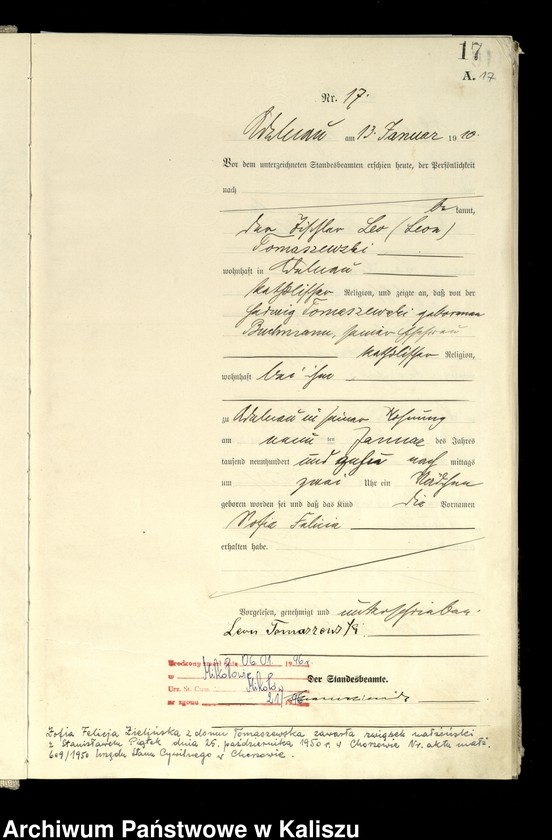 17
A. 17
Nr. 17.
Adelnau am 13. Januar 1910.
Vor dem unterzeichneten Standesbeamten erschien heute, der Persönlichkeit
nach
be kannt,
der Tischler Leo (Leon)
Tomaszewski
wohnhaft in Adelnau
katholischer Religion, und zeigte an, daß von der
Hedwig Tomaszewski geborenen
Buchmann, seiner Ehefrau
katholischer Religion,
wohnhaft bei ihm
zu Adelnau in seiner Wohnung
am neun ten Januar des Jahres
tausend neunhundert und zehn nach mittags
um zwei Uhr ein Mädchen
geboren worden sei und daß das Kind die Vornamen
Sofia Felicia
erhalten habe.
Vorgelesen, genehmigt und unterschrieben.
Leon Tomaszewski
dnia 06.01. 1996r.
w Mikołowie
Urz. St. Cyw. Mikołów
Der Standesbeamte.
nr zgonu 21/96
Zofia Felicja Zielińska z domu Tomaszewska zawarła związek małżeński
z Stanisławem Piątek dnia 25. października 1950 r. w Chorzowie Nr. aktu małż.
609/1950 Urzędu Stanu Cywilnego w Chorzowie.
Archiwum Państwowe w Kaliszu